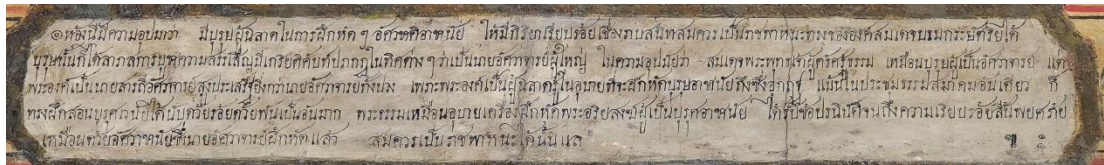 ๏ ห้องนี้มีความอุปมาว่า มีบุรุษผู้ฉลาดในการฝึกหัด ๆ อัศวพาชาอาชาไนย ให้มีกิริยาเรียบร้อยเชื่องภบสนิทสมควรเป็นราชพาหนะทรงขององค์สมเดจบรมกระษัตริย์ได้
บุรุษนั้นก็ได้ลาภสการบูชาความสรรเสริญมีเกรียดิศับท์ปรากฏในทิศต่าง ๆ ว่าเป็นนายอัศวาจาริย์ผู้ใหญ่ ในความอุปมัยว่า สมเดจพระพุทธเจ้าผู้ตรัศรู้ธรรม เหมือนบุรุษผู้เป็นอัศวาจาริย์ แต่
พระองค์เป็นนายสารถีอัศวาจาริย์สูงประเสริฐยิ่งกว่านายอัศวาจาริย์ทั้งปวง เพราะพระองค์เป็นผู้ฉลาดรู้ในอุบายที่จะฝึกหัดบุรุษอาชาไนย แม้ในประชุมธรรมสมาคมอันเดียว ก็
ทรงฝึกสอนบุรุษาชาไนยได้นับด้วยร้อยด้วยพันเป็นอันมาก พระธรรมเหมือนอุบายเครื่องฝึกหัด พระอริยสงฆ์ผู้เป็นบุรุศอาชาไนย ได้รับข้อปรนิบัติจนถึงความเรียบร้อยสิ้นพยศร้าย
เหมือนด้วยอัศวาชาไนยซึ่งนายอัศวาจาริย์ฝึกหัดแล้ว สมควรเป็นราชพาหนะได้นั้นแล